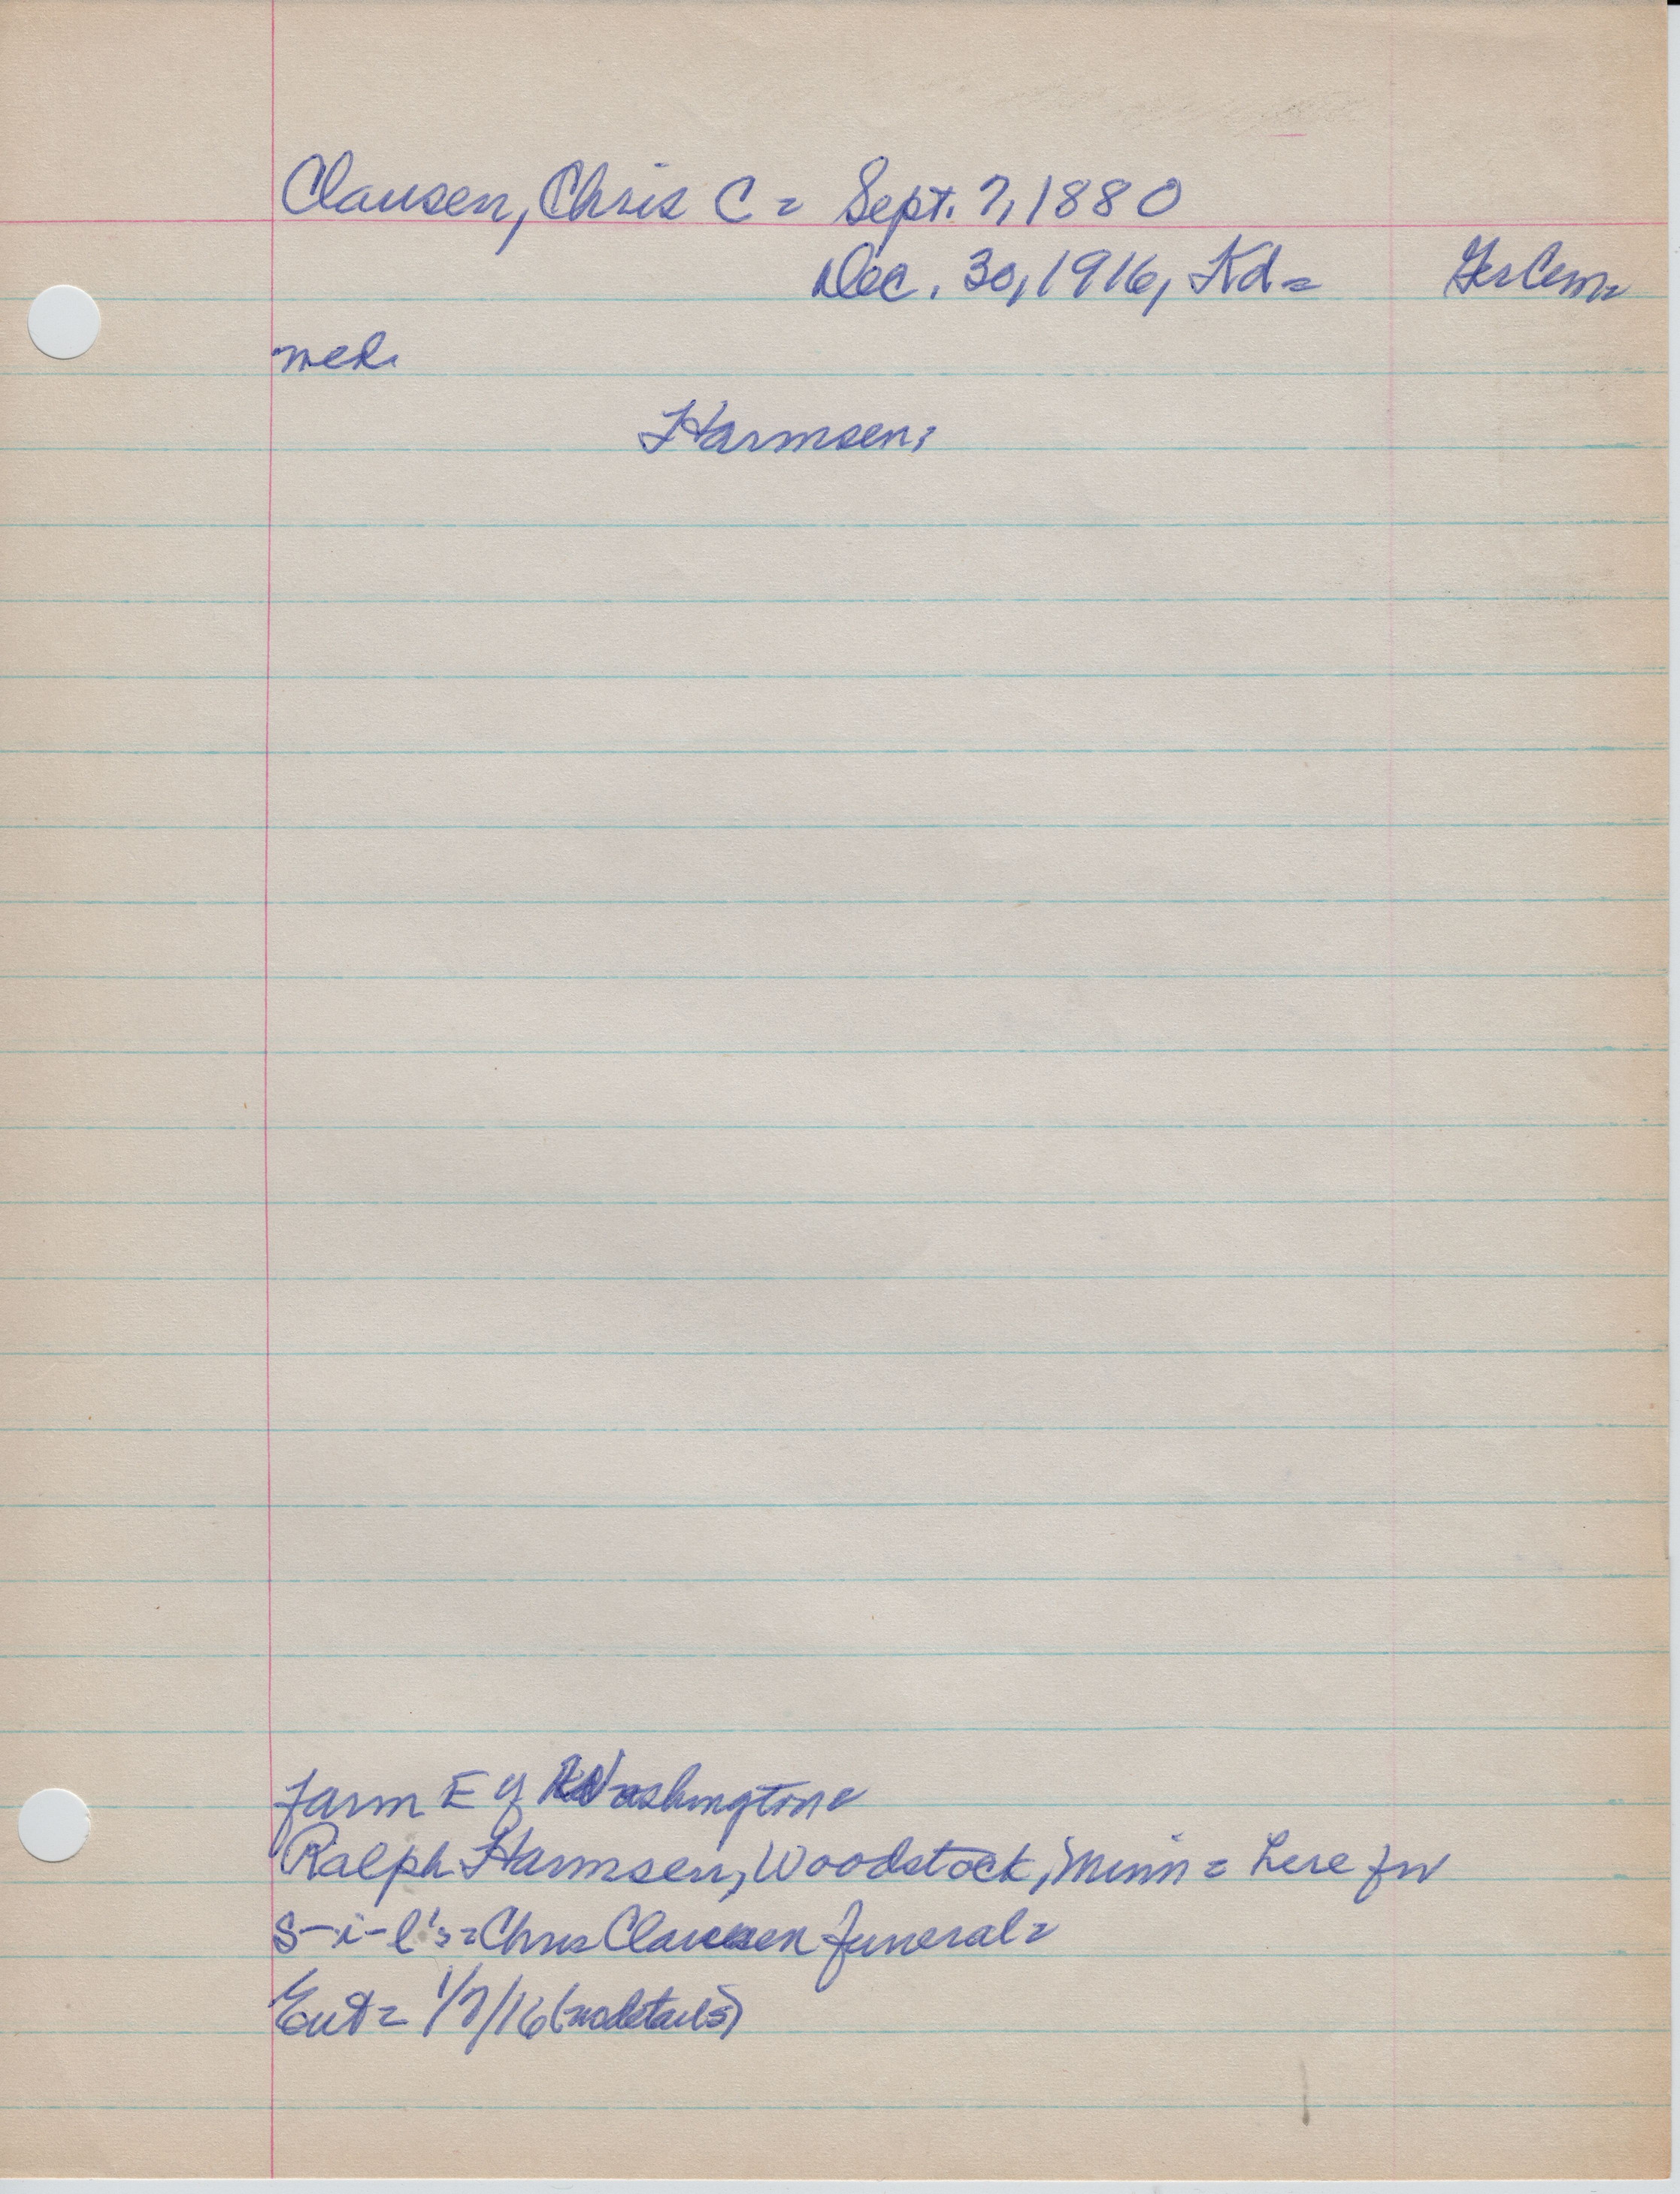 Clausen, Chris C = Sept. 7, 1880
Dec. 30, 1916, Kd = Ger Cem =
med.
Harmsen;
farm E of Washington =
Ralph Harmsen, Woodstock, Minn = here for
s-i-l's = Chris Clausen funeral =
Ent = 1/7/16 (no details)